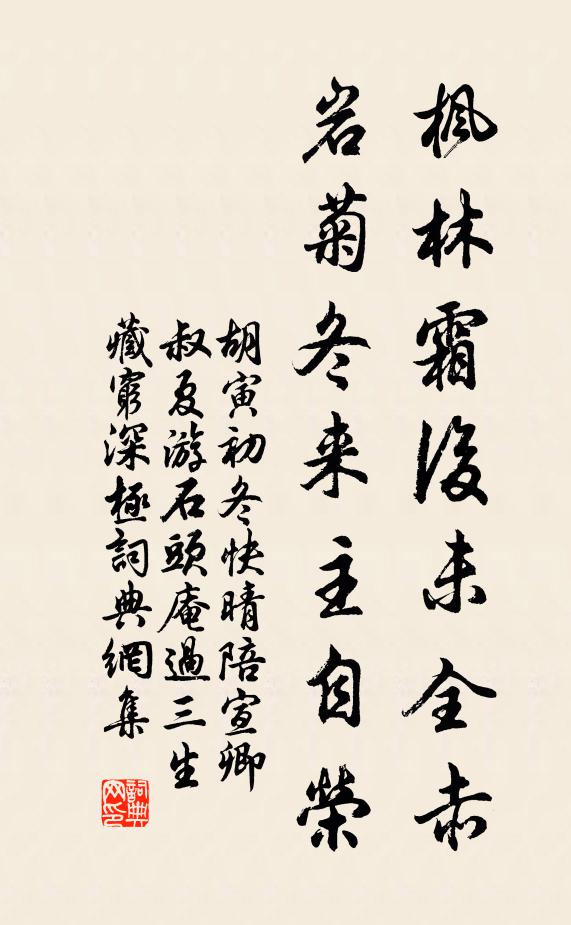 枫林霜後未全赤
岩菊冬来主自榮
胡寅初冬快晴陪宣卿
叔夏游石頭庵過三生
藏窮深極詞典網集
詞典网印